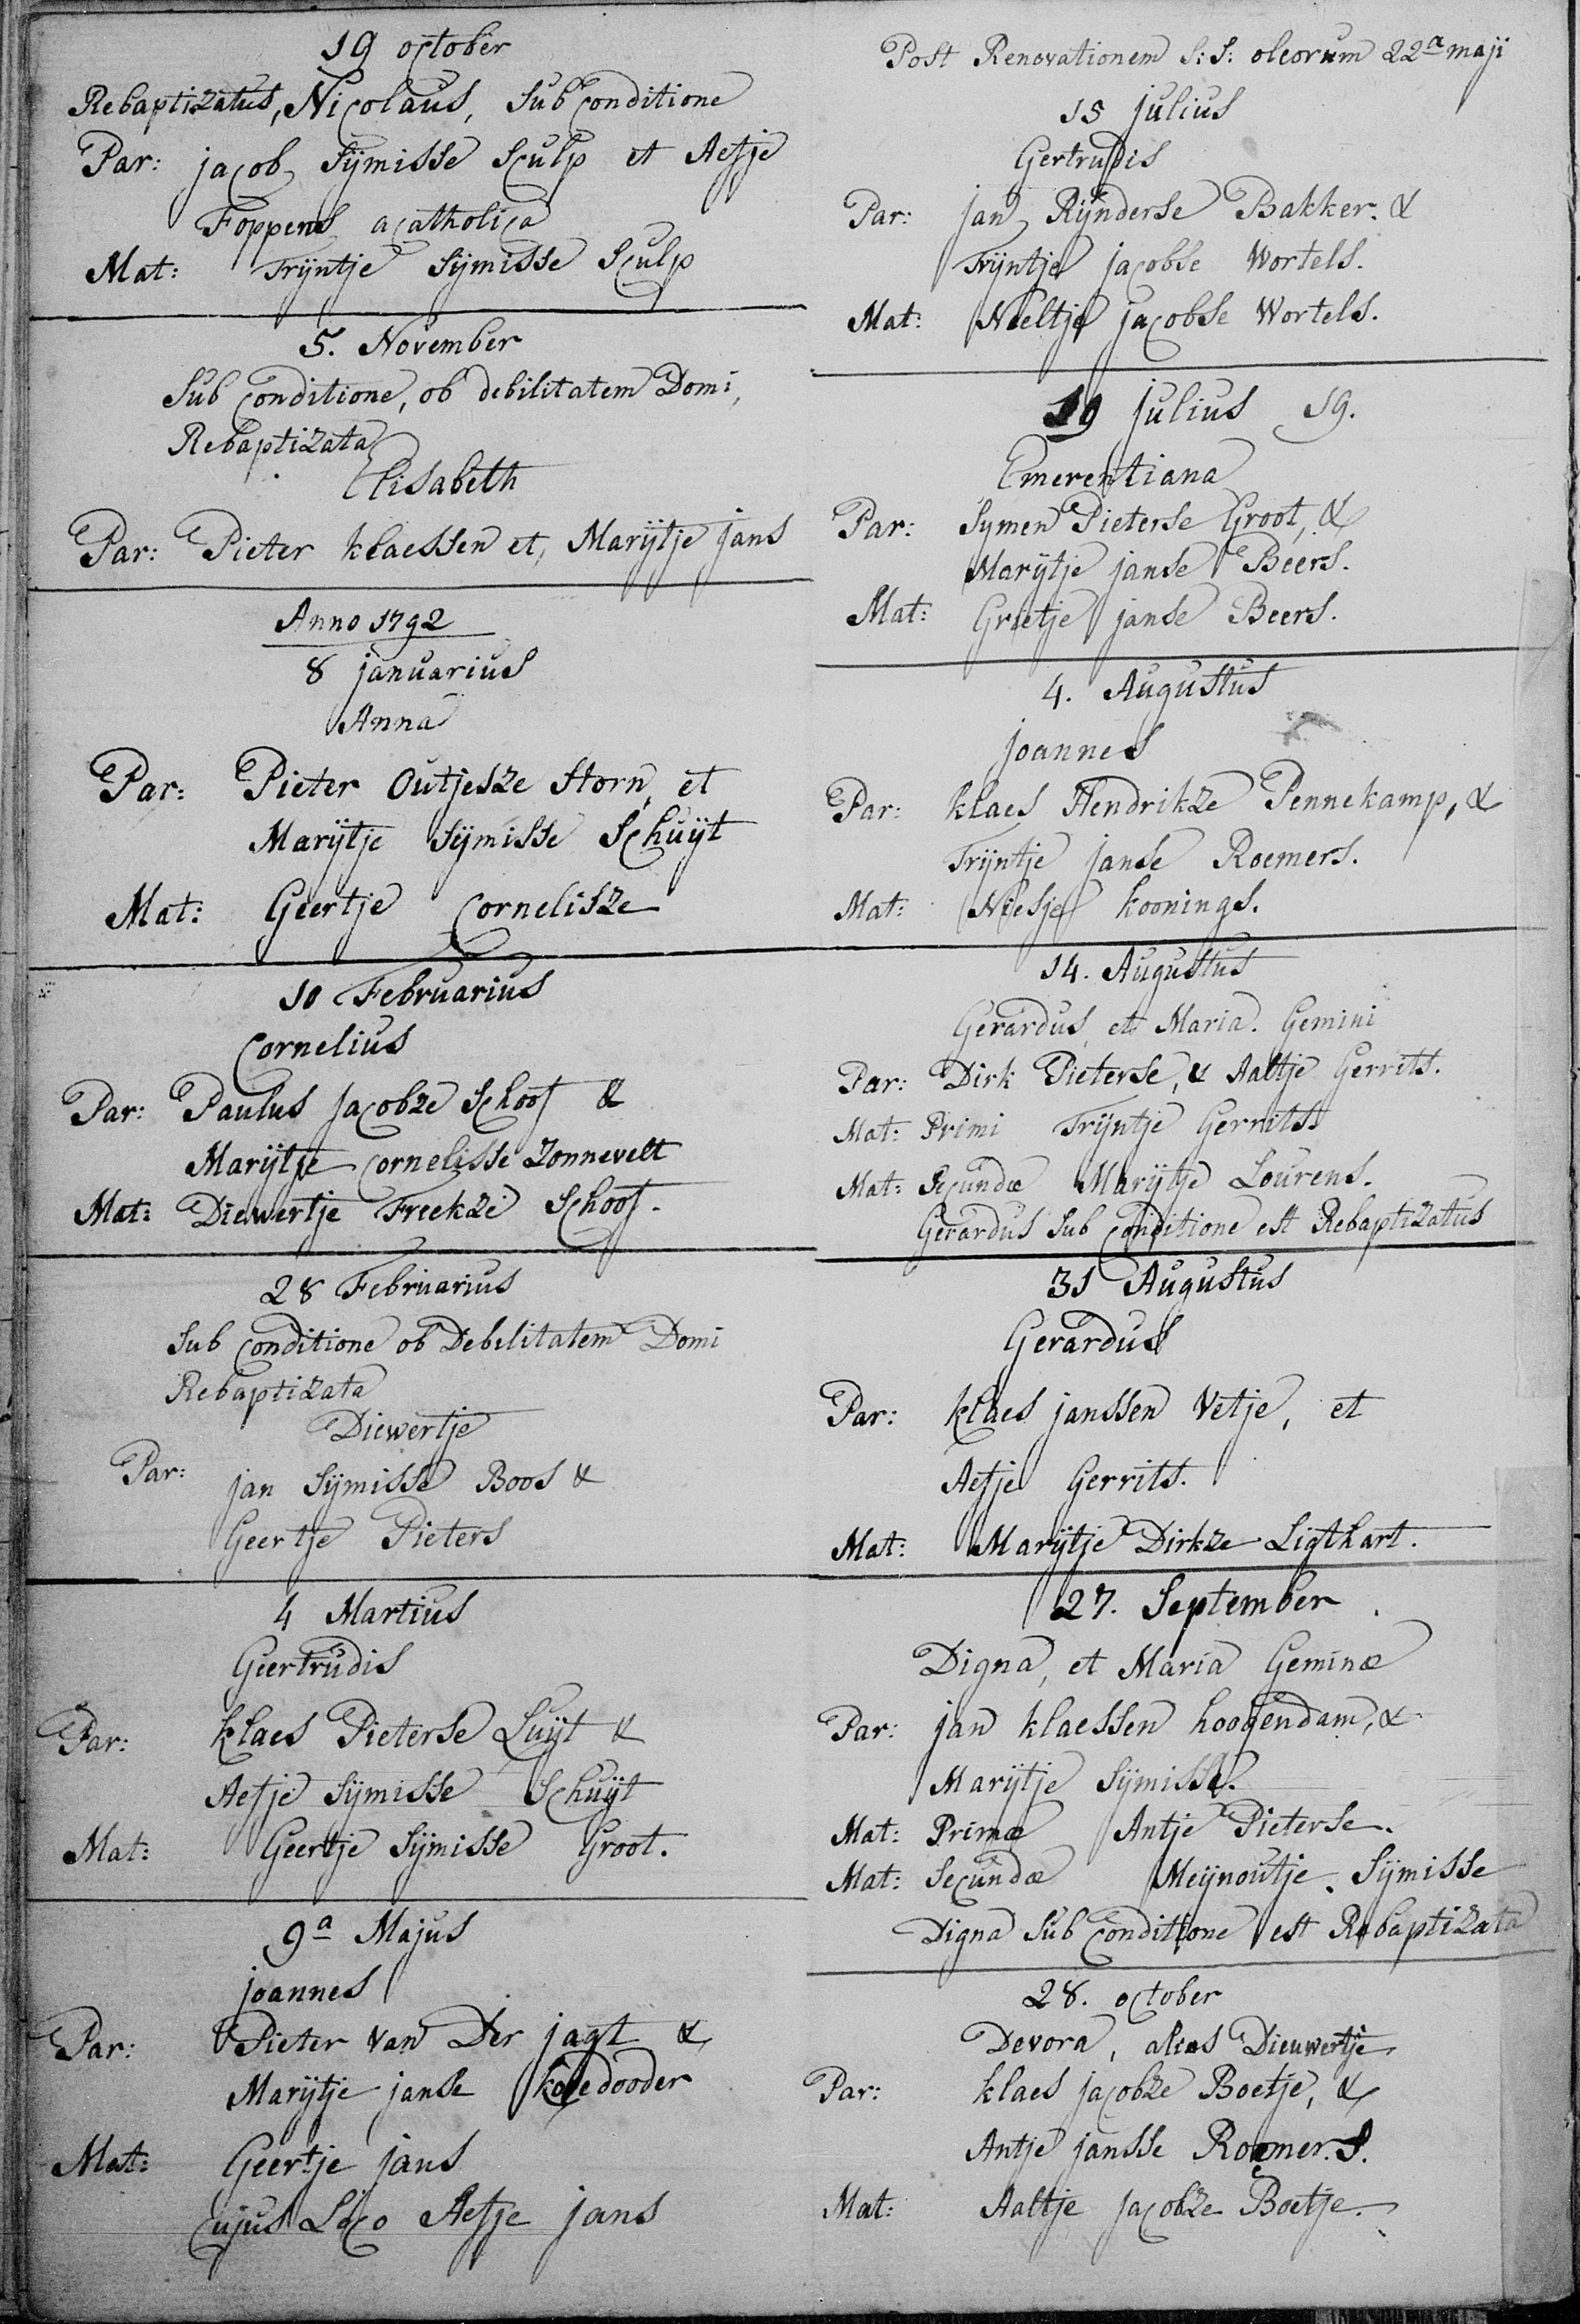 19 october
Rebaptizatus, Nicolaus, sub conditione
Par: jacob Sijmisse Sculp et Aefje
Foppens acatholica
Mat: Trijntje Sijmisse Sculp
5. November
Sub Conditione, ob debilitatem Domi,
Rebaptizata
Elisabeth
Par: Pieter klaessen et, Marijtje jans
Anno 1792
8 januarius
Anna
Par: Pieter Outjesze Storn, et
Marijtje Sijmisse Schuijt
Mat: Geertje Cornelisze
10 Februarius
Cornelius
Par: Paulus jacobze Schoof &
Marijtje Cornelisse Zonnevelt
Mat: Diewertje Freekze Schoof.
28 Februarius
Sub Conditione ob Debilitatem Domi
Rebaptizata
Diewertje
Par: jan Sijmisse Boos &
Geertje Pieters
4 Martius
Geertrudis
Par: klaes Pieterse Luijt &
Aefje Sijmisse Schuijt
Mat: Geertje Sijmisse Groot.
9a Majus
joannes
Par: Pieter van Der jagt &
Marijtje janse koedooder
Mat: Geertje jans
Cujus Loco Aefje jans
Post Renovationem S:S: oleorum 22a maji
15 julius
Gertrudis
Par: jan Rijnderse Bakker. &
Trijntje jacobse Wortels.
Mat: Neeltje jacobse Wortels.
19 julius 19.
Emerentiana
Par: Symen Pieterse Groot, &
Marijtje janse Beers.
Mat: Grietje janse Beers.
4. Augustus
joannes
Par: klaes Hendrikze Pennekamp, &
Trijntje janse Roemers.
Mat: Niesje koonings.
14. Augustus
Gerardus, et Maria. Gemini
Par: Dirk Pieterse, & Aaltje Gerrits.
Mat: Primi Trijntje Gerrits.
Mat: Secundæ Marijtje Lourens.
Gerardus Sub Conditione est Rebaptizatus
31 Augustus
Gerardus
Par: klaes janssen Vetje, et
Aefje Gerrits.
Mat: Marijtje Dirkze Ligthart.
27. September
Digna, et Maria Geminæ
Par: jan klaessen hoogendam, &
Marijtje Sijmisse.
Mat: Primæ Antje Pieterse.
Mat: Secundæ Meijnoutje Sijmisse
Digna Sub Conditione est Rebaptizata
28. october
Devora, alias Dieuwertje
Par: klaes jacobze Boetje, &
Antje jansse Roemer.s.
Mat: Aaltje jacobze Boetje.